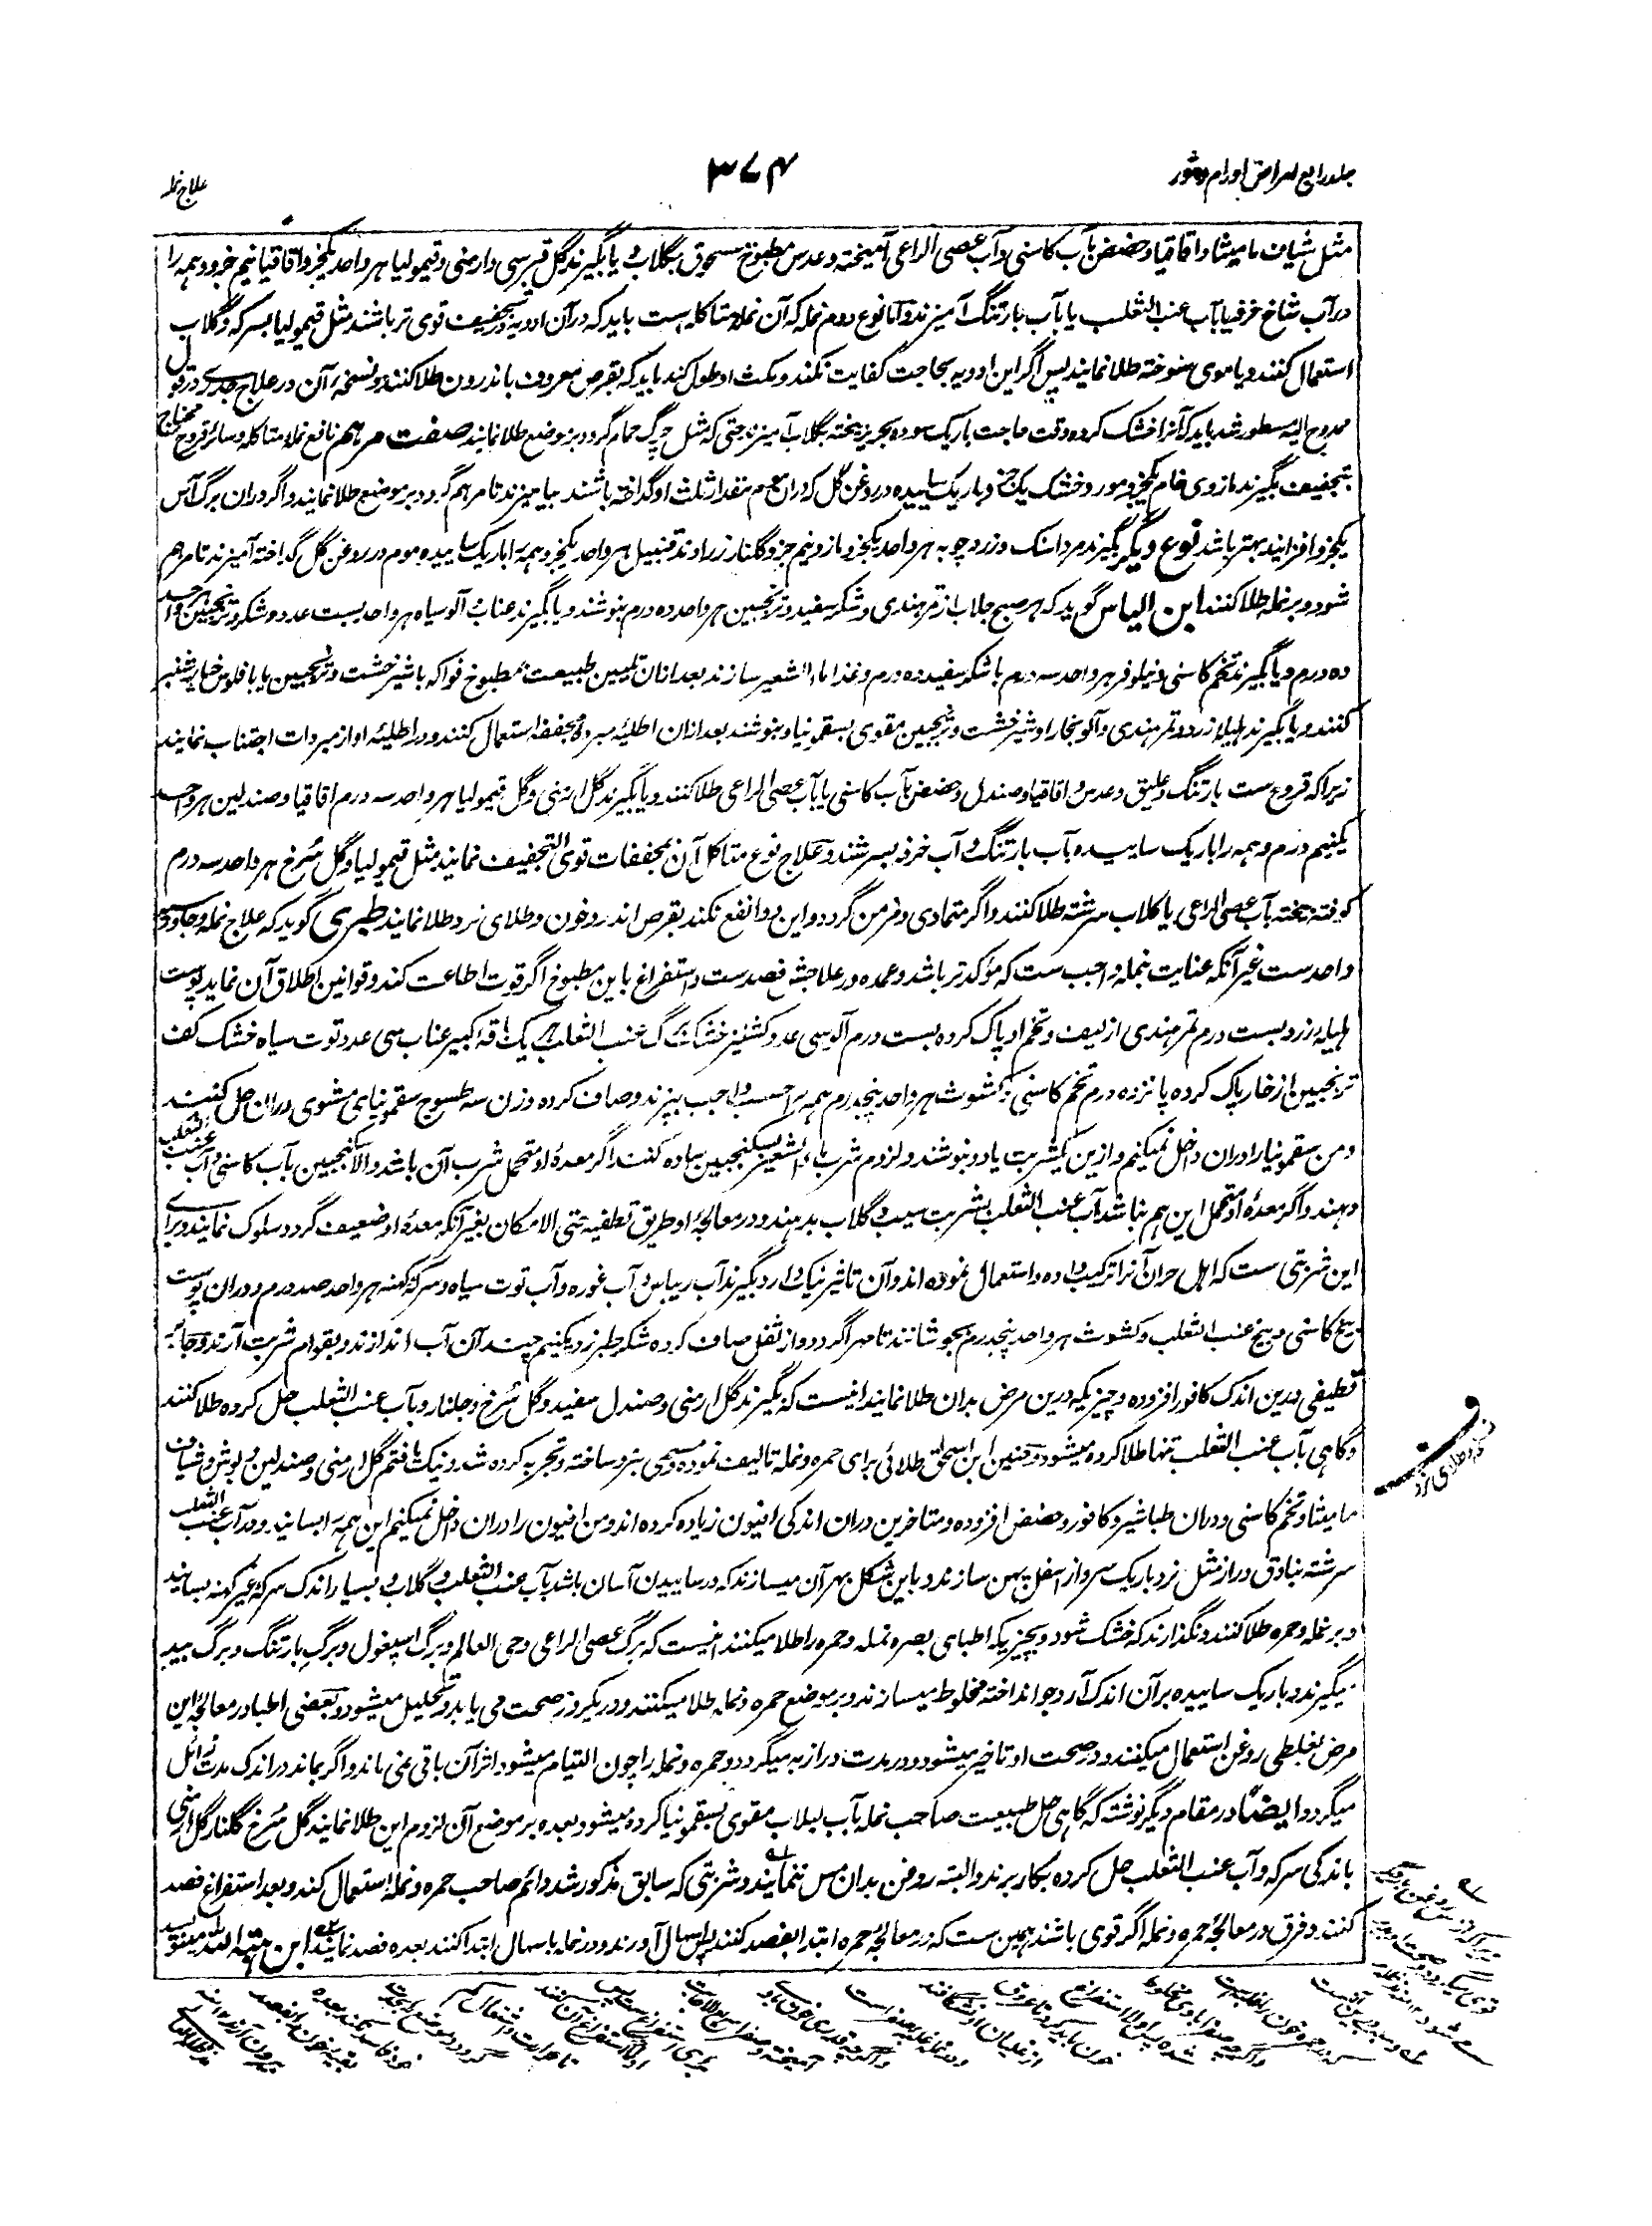 جلد رابع امراض اورام و بثور
۳۷۴
علاج نمله
مثل شیاف مامیثا و اقاقیا و حضض بآب کاسنی و آب عصی الراعی آمیخته و عدس مطبوخ مسحوق بگلاب و یا بگیرند گل قبرسی و ارمنی و قیمولیا هر واحد یکجزو اقاقیا نیم جزو و همه را
در آب شاخ خرفه یا بآب عنب الثعلب یا بآب بارتنگ آمیزند و اما نوع دوم نمله که آن نمله متاکله است باید که در آن ادویه در تجفیف قوی تر باشند مثل قیمولیا بسرکه و گلاب
استعمال کنند و یا موی سوخته طلا نمایند پس اگر این ادویه بحاجت کفایت نکند و مکث او طول کند باید که بقرص معروف باندرون طلا کنند و نسخه آن در علاج جدری در قول
ممدوح الیه مسطور شد باید که آنرا خشک کرده وقت حاجت باریک سوده بحریر بیخته بگلاب آمیزند حتی که مثل چرک حمام گردد بر موضع طلا نمایند صفت مرهم نافع نمله متاکله و سائر قروح محتاج
بتجفیف بگیرند مازوی خام یکجزو مورد خشک یک جزو باریک ساییده در روغن گل که دران موم مقدار ثلث او گداخته باشند بیامیزند تا مرهم گردد بر موضع طلا نمایند و اگر دران برگ آس
یکجزو افزایند بهتر باشد نوع دیگر بگیرند مرداسنک و زردچوبه هر واحد یکجزو مازو نیم جزو گلنار زراوند قنبیل هر واحد یکجزو همه را باریک ساییده بموم در روغن گل گداخته آمیزند تا مرهم
شود و بر نمله طلا کنند ابن الیاس گوید که هر صبح جلاب از تمر هندی و شکر سفید و ترنجبین هر واحد ده درم بنوشند و یا بگیرند عناب آلو سیاه هر واحد بست عدد و شکر و ترنجبین هر واحد
ده درم و یا بگیرند تخم کاسنی و نیلوفر هر واحد سه درم با شکر سفید ده درم و غذا ماء الشعیر سازند بعد ازان تلیین طبیعت بمطبوخ فواکه با شیرخشت و ترنجبین یا با فلوس خیارشنبر
کنند و یا بگیرند هلیله زرد و تمر هندی و آلو بخارا و شیرخشت و ترنجبین مقوی بسقمونیا و بنوشند بعد ازان اطلیه مبرده مجففه استعمال کنند و در اطلیه او از مبردات اجتناب نمایند
زیرا که قروح ست بارتنگ و علیق و عدس و اقاقیا و صندل و حضض بآب کاسنی یا بآب عصی الراعی طلا کنند و یا بگیرند گل ارمنی و گل قیمولیا هر واحد سه درم اقاقیا و صندلین هر واحد
یکنیم درم و همه را باریک ساییده بآب بارتنگ و آب خرفه بسرشند و علاج نوع متاکل آن بمجففات قوی التجفیف نمایند مثل قیمولیا و گل سرخ هر واحد سه درم
کوفته بیخته بآب عصی الراعی یا گلاب سرشته طلا کنند و اگر متمادی و مزمن گردد و این دوا نفع نکند بقرص اندروخون و طلای نرد طلا نمایند طبری گوید که علاج نمله و جاورسیه
واحدست غیر آنکه عنایت بنمله واجب ست که مؤکدتر باشد و عمده در علاجش فصدست و استفراغ باین مطبوخ اگر قوت اطاعت کند و قوانین اطلاق آن نماید پوست
هلیله زرد بست درم تمر هندی از لیف و تخم او پاک کرده بست درم آلو سی عدد کشنیز خشک برگ عنب الثعلب یک باقه کبیر عناب سی عدد توت سیاه خشک کف
ترنجبین از خار پاک کرده پانزده درم تخم کاسنی کشوث هر واحد پنجدرم همه را حسب واجب بپزند و صاف کرده وزن سه طسوج سقمونیای مشوی دران حل کنند
و من سقمونیا را دران داخل نمیکنم و ازین یکشربت یا دو بنوشند و لزوم شرب ماء الشعیر بسکنجبین ساده کنند اگر معده او متحمل شرب آن باشد و الا سکنجبین بآب کاسنی و آب عنب الثعلب
دهند و اگر معده او متحمل این هم نباشد آب عنب الثعلب بشربت سیب و گلاب بدهند و در معالجه او طریق تطفیه حتی الامکان بغیر آنکه معده او ضعیف گردد سلوک نمایند و برای
این شربتی ست که اهل حران آنرا ترکیب داده و استعمال نموده اند و آن تاثیر نیک دارد بگیرند آب ریباس و آب غوره و آب توت سیاه و سرکه کهنه هر واحد صد درم و دران پوست
بیخ کاسنی و بیخ عنب الثعلب و کشوث هر واحد پنجدرم بجوشانند تا مهرا گردد و از ثفل صاف کرده شکر طبرزد یکنیم چند آن آب اندازند و بقوام شربت آرند و جائیکه
تطفیه درین اندک کافور افزوده و چیزیکه درین مرض بدان طلا نمایند اینست که بگیرند گل ارمنی و صندل سفید و گل سرخ و جلنار و بآب عنب الثعلب حل کرده طلا کنند
و گاهی بآب عنب الثعلب تنها طلا کرده میشود و حنین ابن اسحق طلائی برای حمره و نمله تالیف نموده و مسمی بنرد ساخته و تجربه کرده شد و نیک یافتم گل ارمنی و صندلین و بوش و شیاف
مامیثا و تخم کاسنی و دران طباشیر و کافور و حضض افزوده و متاخرین دران اندکی افیون زیاده کرده اند و من افیون را دران داخل نمیکنم این همه را بسایند و در آب عنب الثعلب
سرشته بنادق دراز مثل نرد باریک سر و از اسفل پهن سازند و باین شکل بهر آن میسازند که در ساییدن آسان باشد بآب عنب الثعلب و گلاب و بسیار اندک سرکه غیر کهنه بسایند
و بر نمله و حمره طلا کنند و نگذارند که خشک شود و بچیزیکه اطبای بصره نمله و حمره را طلا میکنند اینست که برگ عصی الراعی و حی العالم و برگ اسپغول و برگ بارتنگ و برگ بید
بگیرند و باریک ساییده بر آن اندک آرد جو انداخته مخلوط میسازند و بر موضع حمره و نمله طلا میکنند و در یکروز صحت می یابد و تحلیل میشود و بعضی اطبا در معالجه این
مرض بغلطی روغن استعمال میکنند و در صحت او تاخیر میشود و در مدت دراز به میگردد و حمره و نمله را چون التیام میشود اثر آن باقی نمی ماند و اگر بماند در اندک مدت زائل
میگردد ایضاً در مقام دیگر نوشته که گاهی حل طبیعت صاحب نمله بآب لبلاب مقوی بسقمونیا کرده میشود بعده بر موضع آن لزوم این طلا نمایند گل سرخ گلنار گل ارمنی
باندکی سرکه و آب عنب الثعلب حل کرده بکار برند و البته روغن بدان مس ننمایند و شربتی که سابق مذکور شد دائم صاحب حمره و نمله استعمال کند و بعد استفراغ فصد
کنند و فرق در معالجه حمره و نمله اگر قوی باشند همین ست که در معالجه حمره ابتدا بفصد کنند پس اسهال آورند و در نمله باسهال ابتدا کنند بعده فصد نمایند ابن هبة الله مینویسد